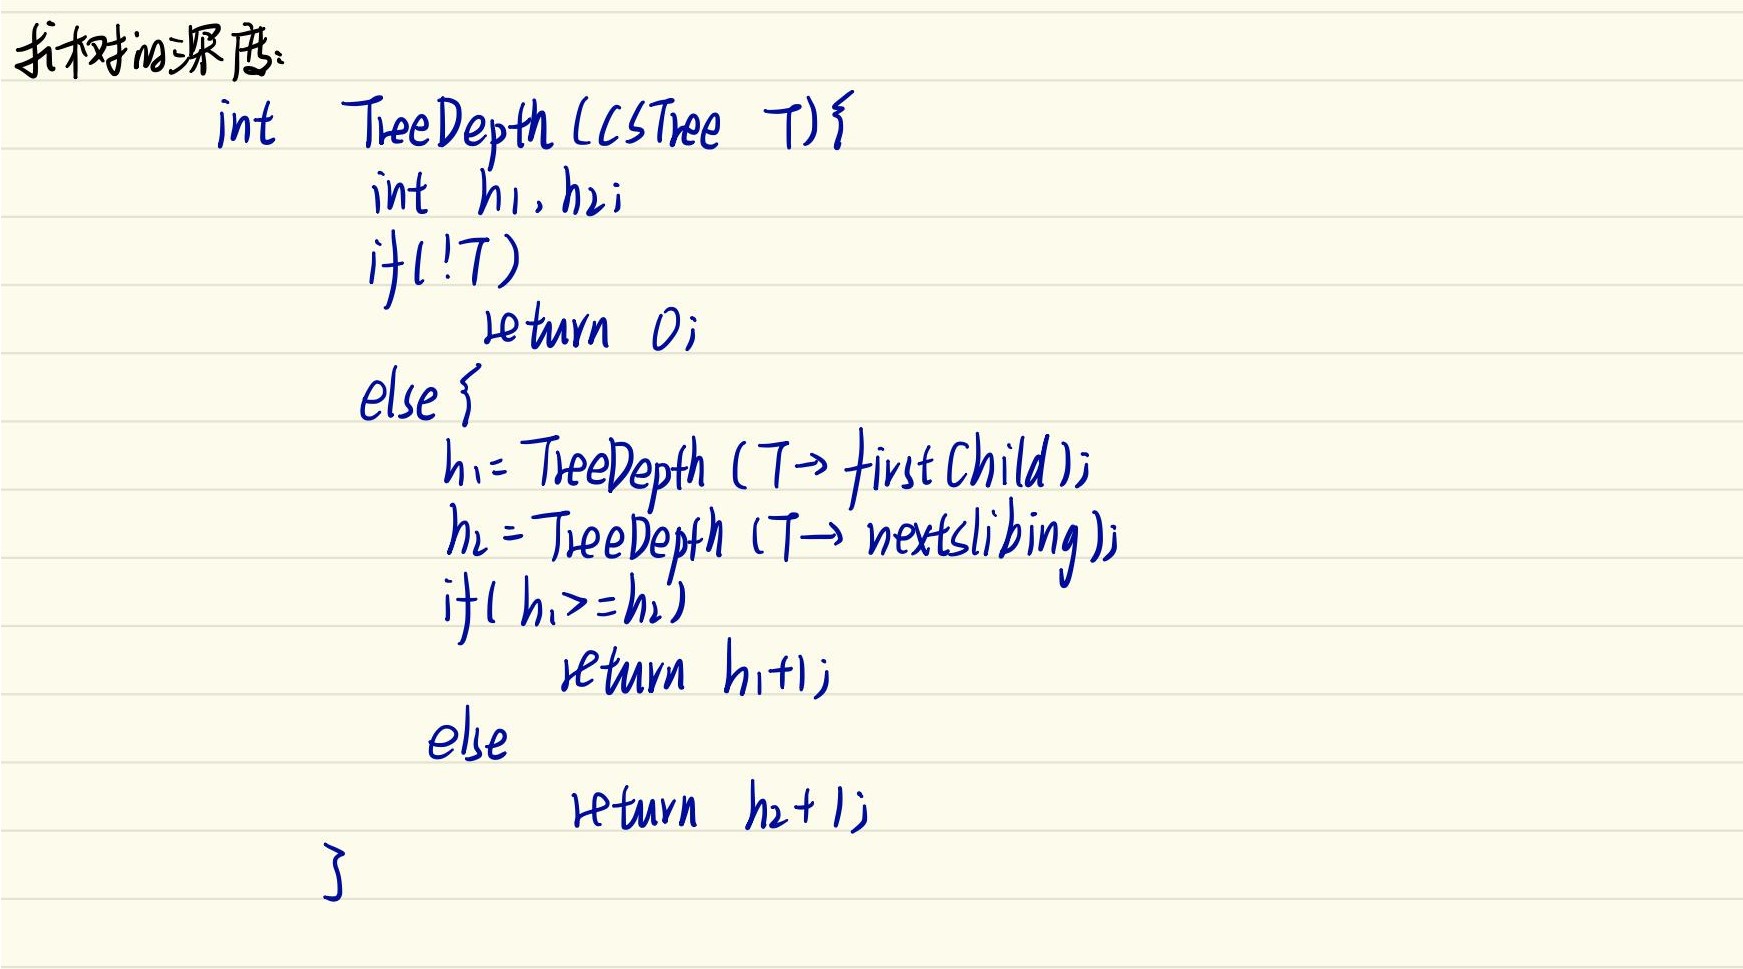 求树的深度:
int TreeDepth (CSTree T){
int h1, h2;
if(!T)
return 0;
else {
h1= TreeDepth (T→ firstChild);
h2 = TreeDepth (T→ nextslibing);
if( h1>=h2)
return h1+1;
else
return h2+1;
}